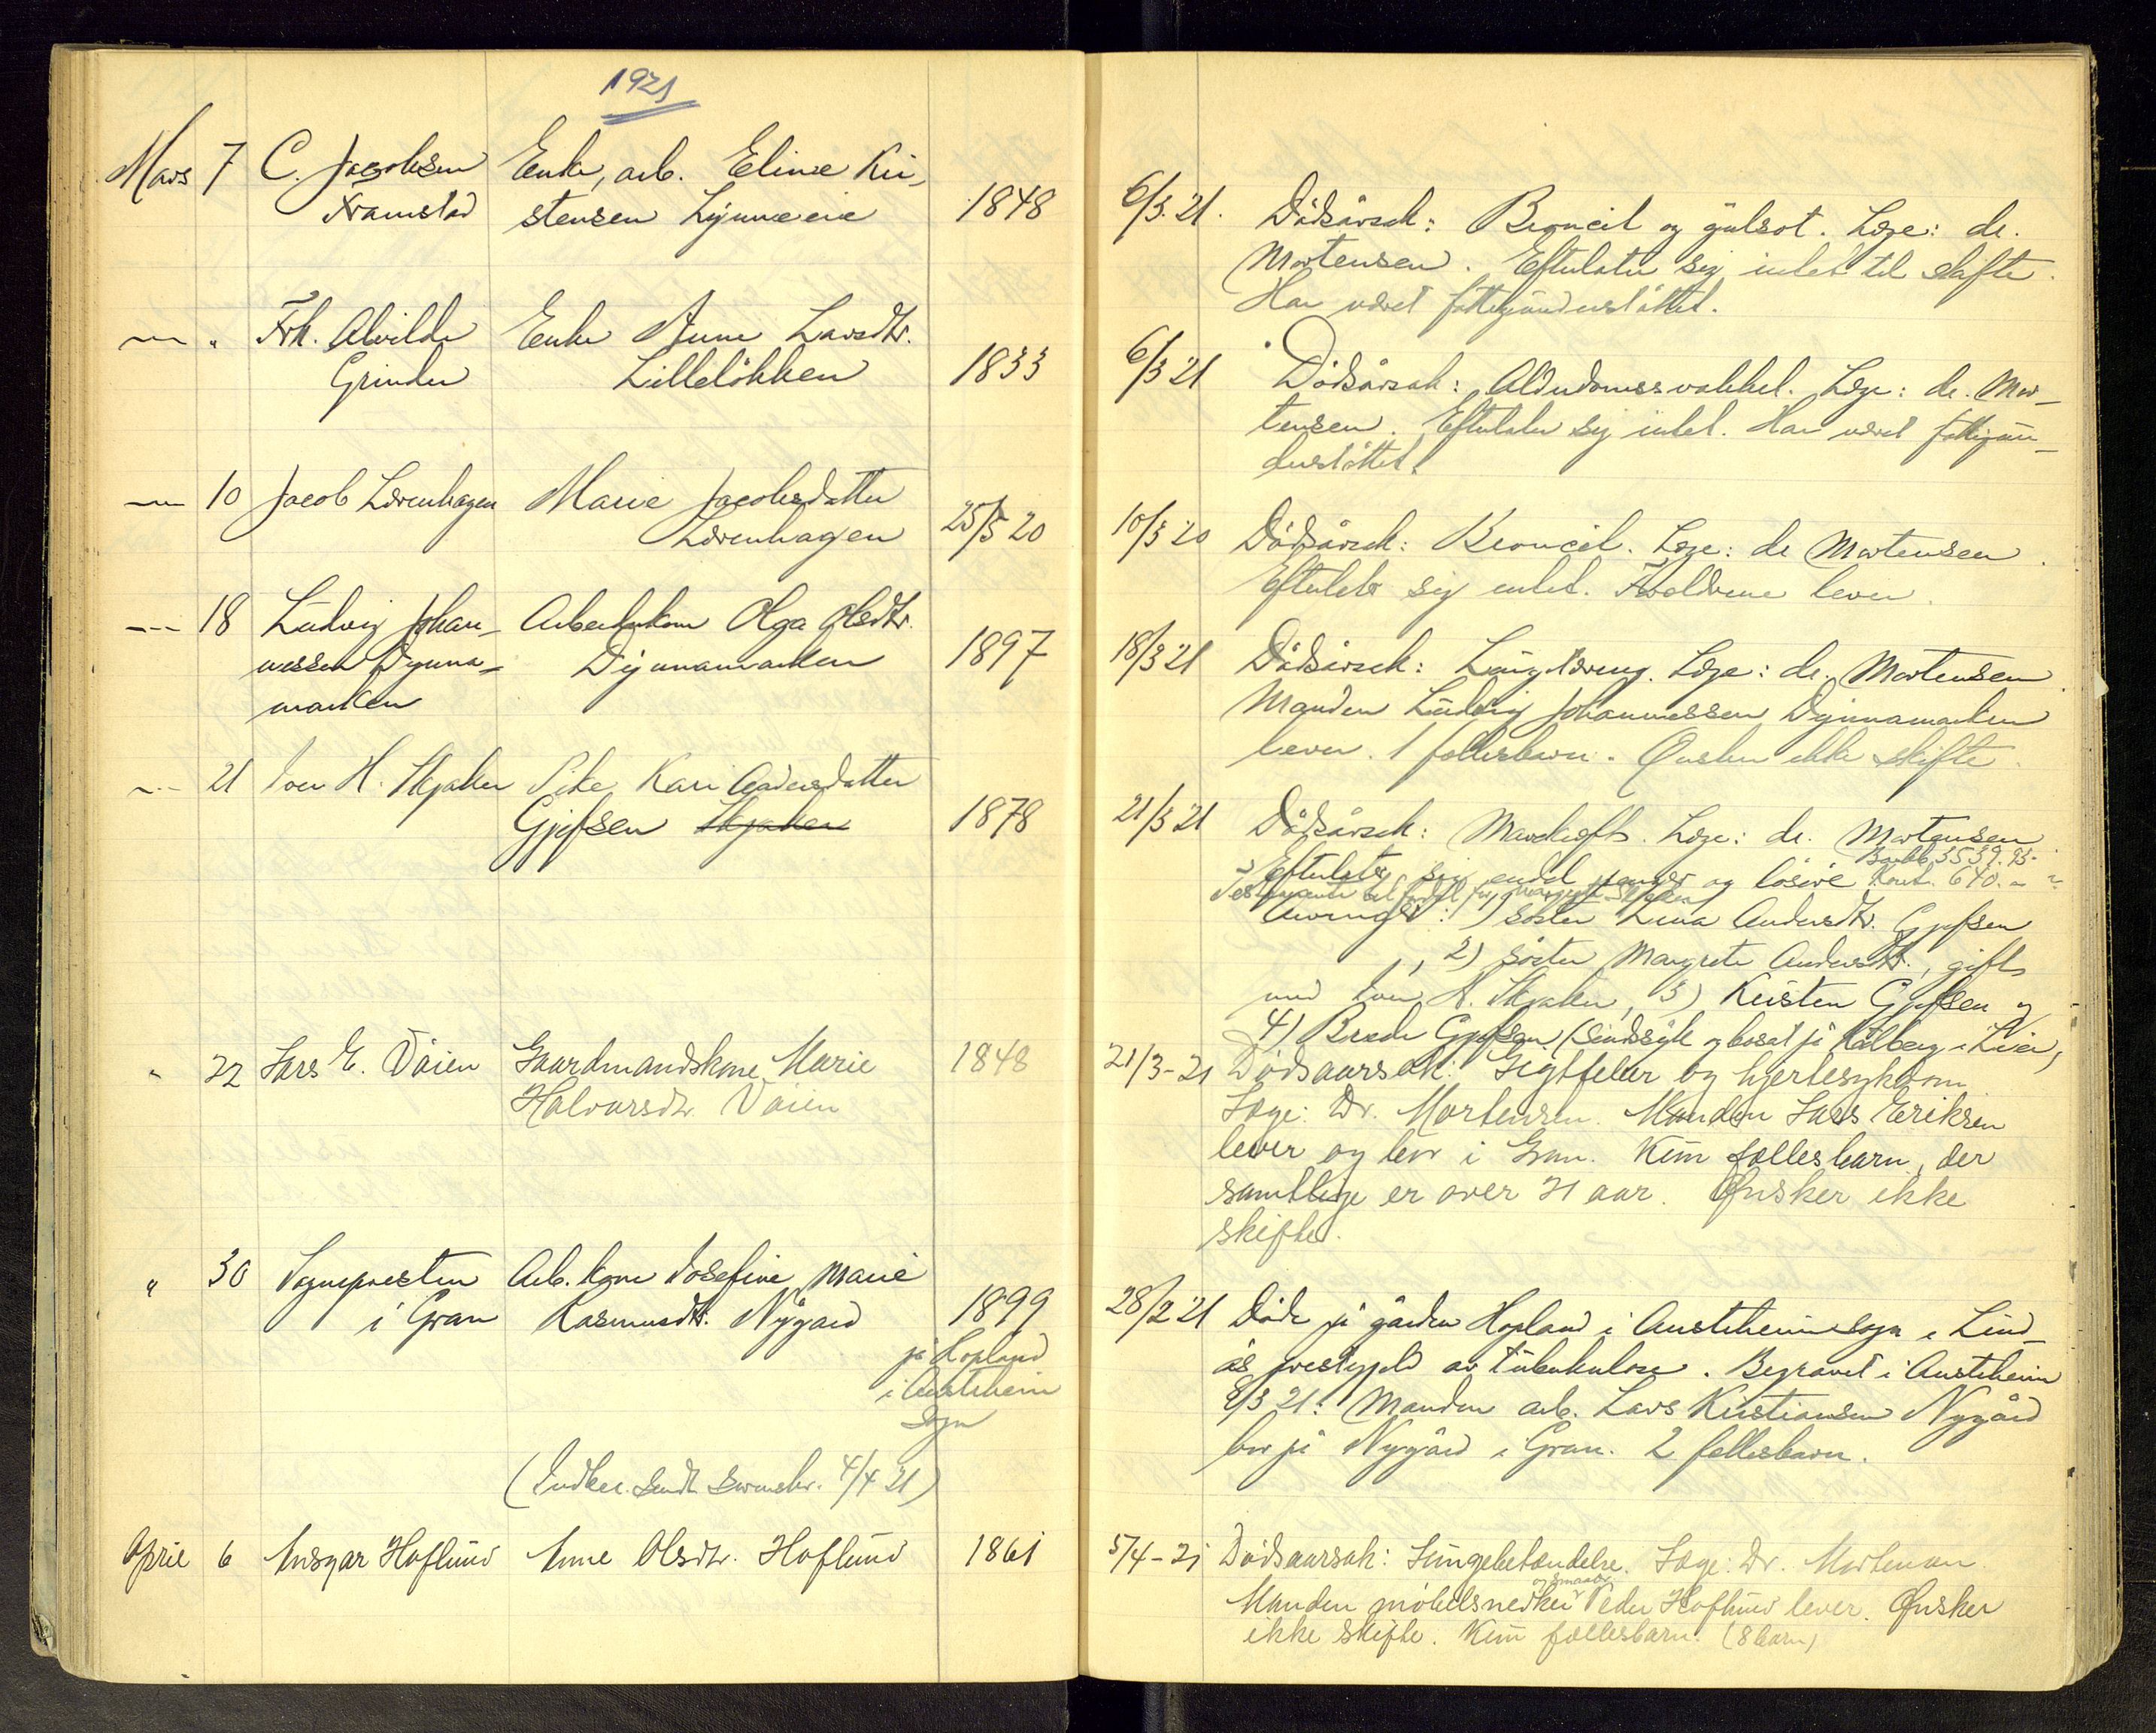 1921
Mars 7 C. Jacobsen Enke, arb. Eline Kri-
Framstad stensen Lynneeie 1848
6/3.21. Dödsårsak: Broncit og gulsot. Læge: dr.
Mortensen. Efterlater sig intet til skifte.
Har været fattigunderstöttet.
— " Frk. Alvilde Enke Anne Larsdtr.
Grinder Lillelökken 1833
6/3 21 Dödsårsak: Alderdomssvakkel. Læge: dr. Mor-
tensen. Efterlater sig intet. Har været fattigun-
derstöttet.
— 10 Jacob Lørenhagen Marie Jacobsdatter
Lørenhagen 25/5 20
10/3 20 Dödsårsak: Broncit. Læge: dr Mortensen.
Efterlater sig intet. Forældrene lever.
— 18 Ludvig Johan- Arbeiderkone Olga Olsdtr.
nessen Dynna- Dynnamarken 1897
marken
18/3 21 Dödsårsak: Lungetæring. Læge: dr. Mortensen.
Manden Ludvig Johannessen Dynnamarken
lever. 1 fællesbarn. Ønsker ikke skifte.
— 21 Iver H. Skjaker Pike Kari Andersdatter
Gjefsen Skjaker 1878
21/3 21 Dödsårsak: Mavekræft. Læge: dr. Mortensen
Bankb. 3539.93.
Efterlater sig endel penger og lösöre Kont. 640.-
Testamente til fordel for Margrete Skjaker
Arvinger: 1) söster Lina Andersdtr. Gjefsen
, 2) söster Margrete Andersdtr., gift
med Iver H. Skjaker, 3) Kristen Gjefsen og
4) Brede Gjefsen (sindssyk og bosat på Kålberg i Lier)
" 22 Lars E. Våien Gaardmandskone Marie 1848
Halvorsdtr. Våien
21/3-21 Dödsaarsak: Gigtfeber og hjertesykdom
Læge: Dr. Mortensen. Manden Lars Eriksen
lever og bor i Gran. Kun fællesbarn, der
samtlige er over 21 aar. Ønsker ikke
skifte.
" 30 Sognepresten Arb. kone Josefine Marie
i Gran Rasmusdtr. Nygård 1899
på Hopland
i Austrheim
Sogn
(Indber. sendt sorenskr. 4/4 21)
28/2 21 Döde på gården Hopland i Austrheim sogn i Lind-
ås prestegjeld av tuberkulose. Begravet i Austrheim
8/3 21. Manden arb. Lars Kristiansen Nygård
bor på Nygård i Gran. 2 fellesbarn.
April 6 Ansgar Hoflund Anne Olsdtr. Hoflund 1861
5/4-21 Dödsaarsak: Lungebetændelse. Læge: Dr. Mortensen.
og smaabr.
Manden möbelsnedker Peder Hoflund lever. Ønsker
ikke skifte. Kun fællesbarn. (8 barn)